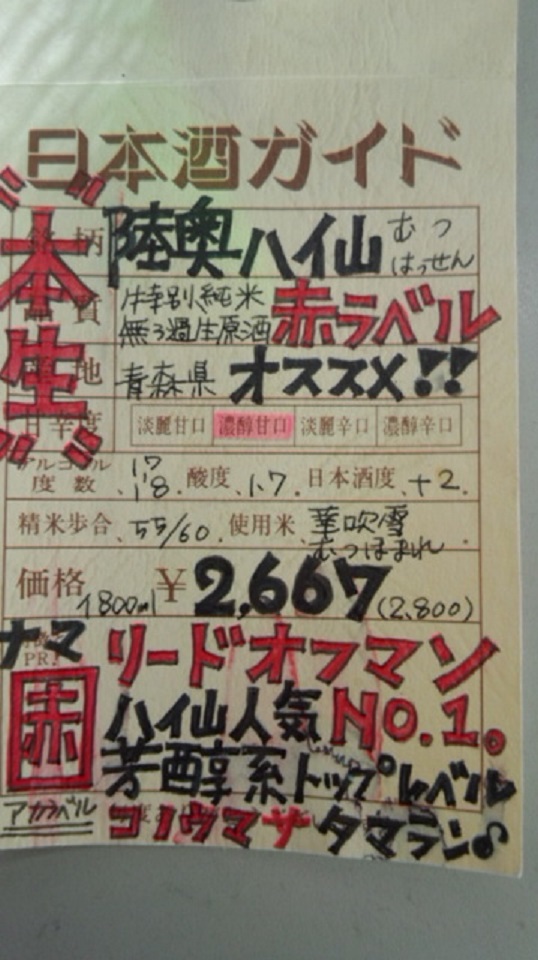 日本酒ガイド
"本生"
銘柄 陸奥ハイ山 むつ はっせん
品質 特別純米 無ろ過生原酒 赤ラベル
産地 青森県 オススメ!!
甘辛度 淡麗甘口 濃醇甘口 淡麗辛口 濃醇辛口
アルコール度数 17 18 酸度 1.7 日本酒度 +2
精米歩合 55/60 使用米 華吹雪 むつほまれ
価格 1800ml ¥2,667 (2,800)
PR! ナマ リードオフマン
赤 ハイ山人気NO.1。
芳醇系トップレベル
アカラベル コノウマサタマラン♪